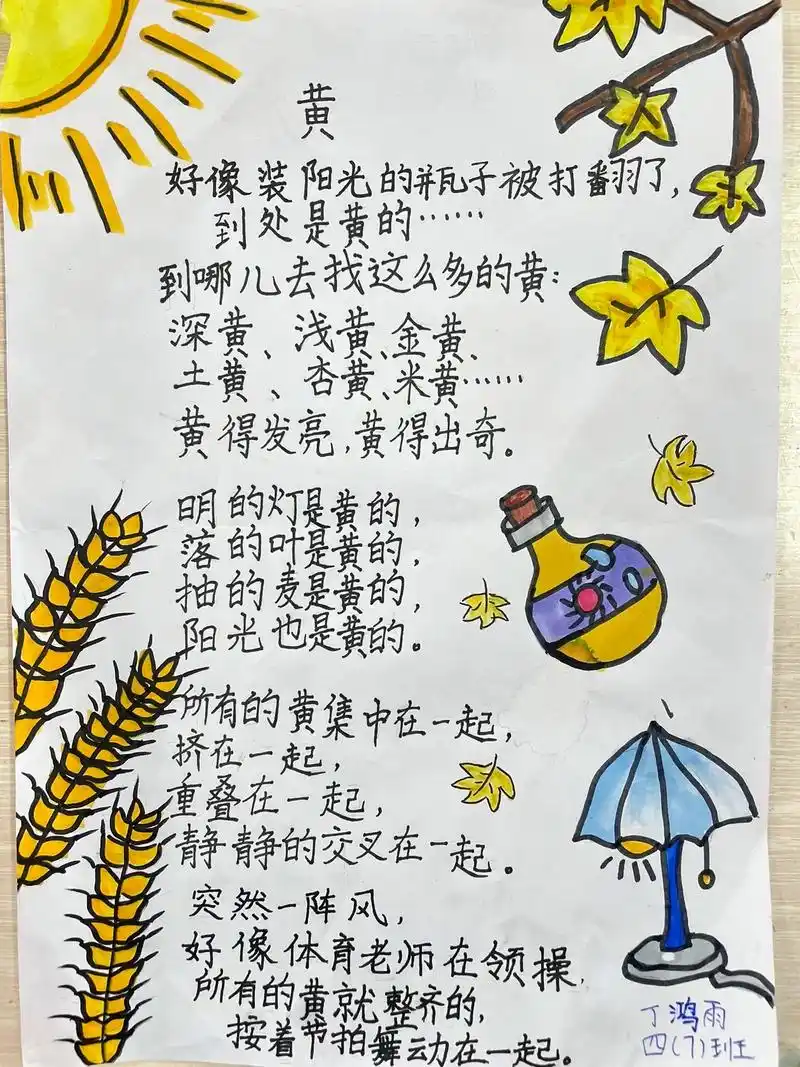 黄
好像装阳光的瓶子被打翻了,
到处是黄的……
到哪儿去找这么多的黄:
深黄、浅黄、金黄、
土黄、杏黄、米黄……
黄得发亮,黄得出奇。
明的灯是黄的,
落的叶是黄的,
抽的麦是黄的,
阳光也是黄的。
所有的黄集中在一起,
挤在一起,
重叠在一起,
静静的交叉在一起。
突然一阵风,
好像体育老师在领操,
所有的黄就整齐的,
按着节拍舞动在一起。
丁鸿雨
四(7)班